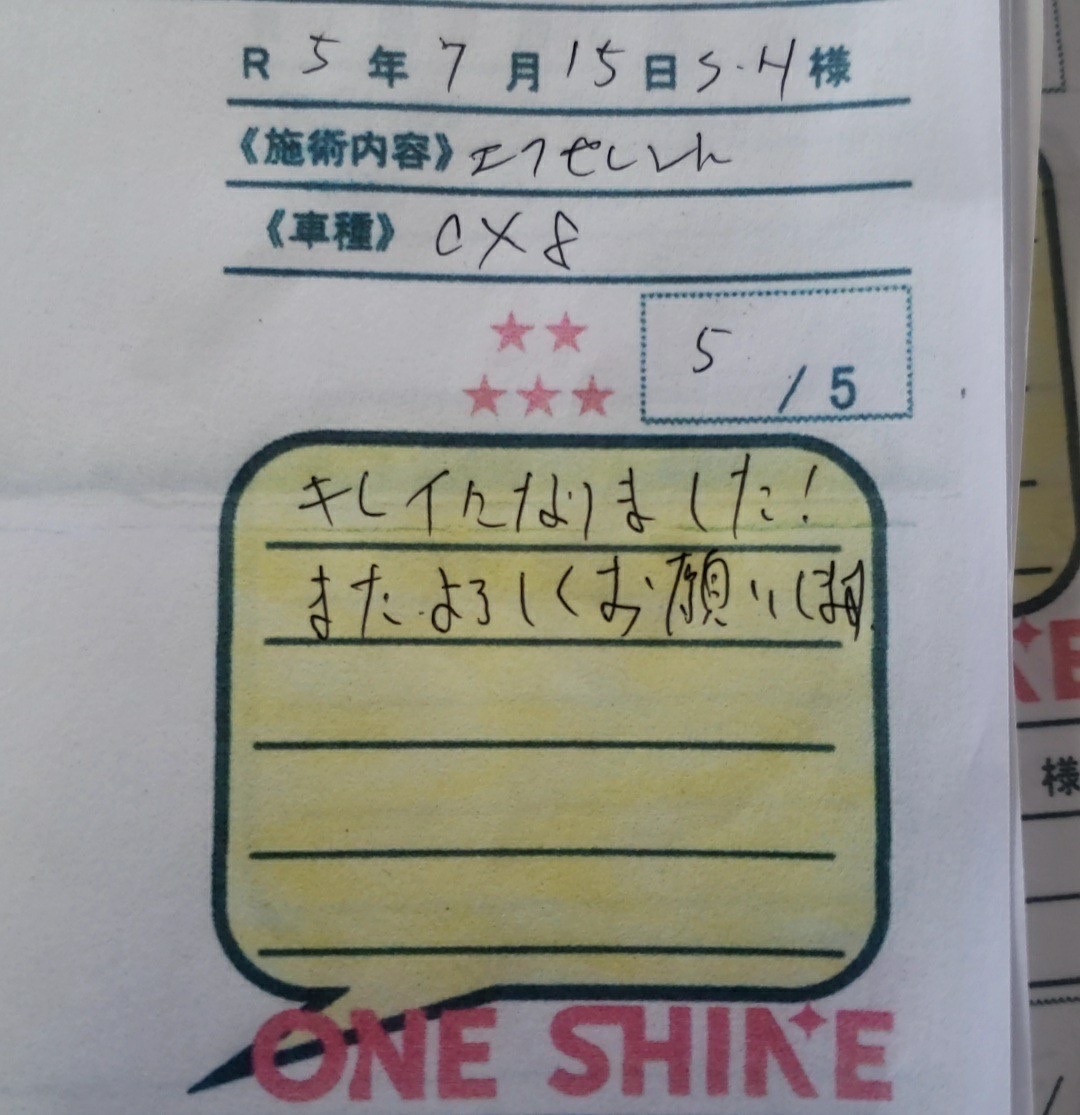 R 5年7月15日 S.H様
《施術内容》エクセレント
《車種》CX8
★★
★★★
5/5
キレイになりました!
またよろしくお願いします。
ONE SHINE
様